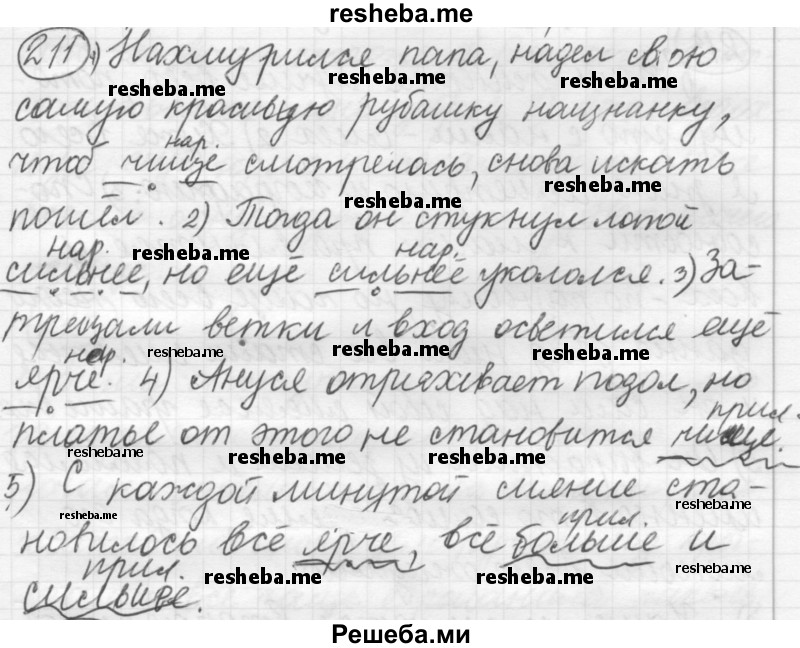 resheba.me
211 1) Нахмурился папа, надел свою
resheba.me resheba.me resheba.me
самую красивую рубашку наизнанку,
нар.
чтоб чище смотрелась, снова искать
resheba.me resheba.me
пошёл. 2) Тогда он стукнул лапой
нар. resheba.me нар.
сильнее, но ещё сильнее укололся. 3) За-
трещали ветки и вход осветился ещё
нар. resheba.me resheba.me
ярче. 4) Ануся отряхивает подол, но
прил.
платье от этого не становится чище.
resheba.me resheba.me resheba.me
5) С каждой минутой сияние ста-
resheba.me resheba.me
прил.
новилось всё ярче, всё больше и
прил. resheba.me resheba.me resheba.me
сильнее.
Решеба.ми